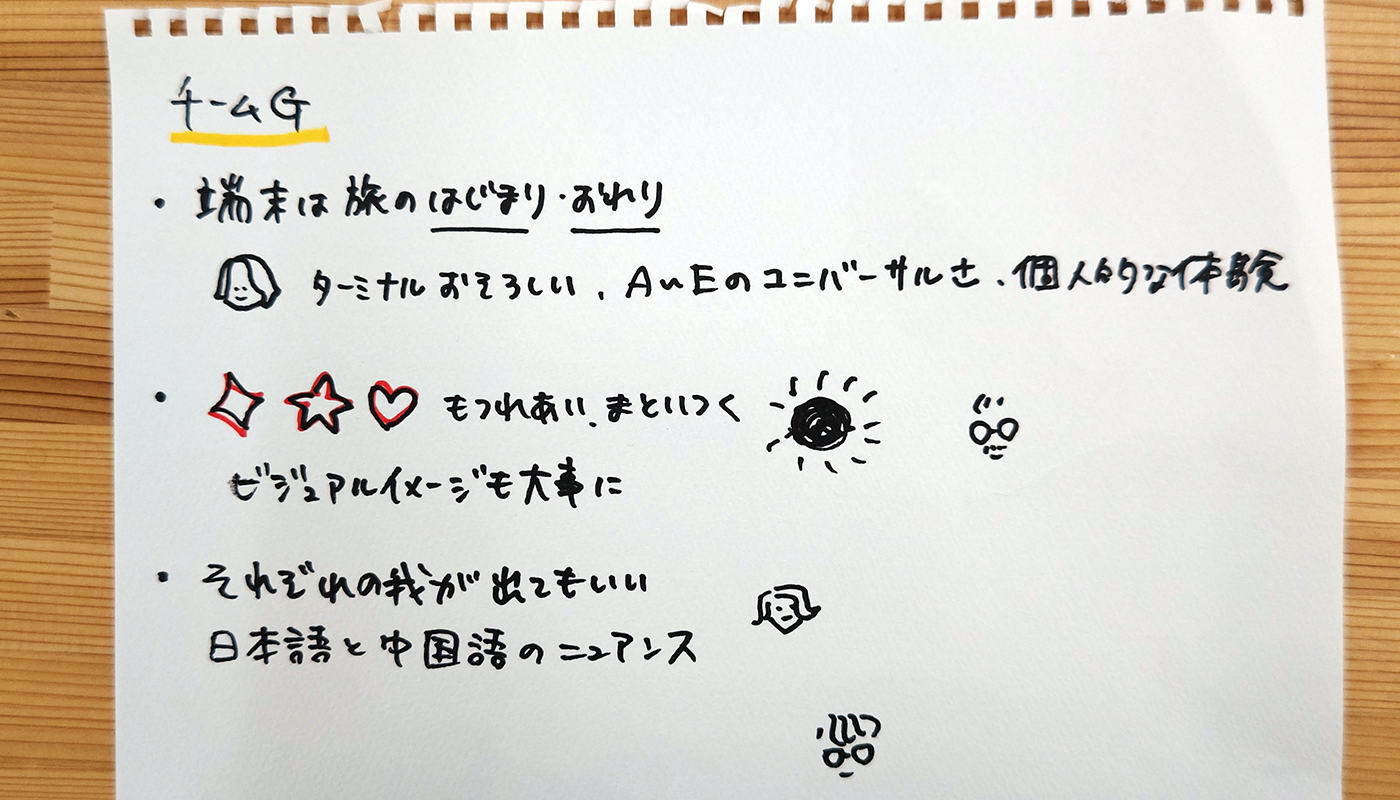 チームG
・端末は旅のはじまり・おわり
ターミナルおそろしい、AとEのユニバーサルさ、個人的な体験
・もつれあい、まといつく
ビジュアルイメージも大事に
・それぞれの我が出てもいい
日本語と中国語のニュアンス